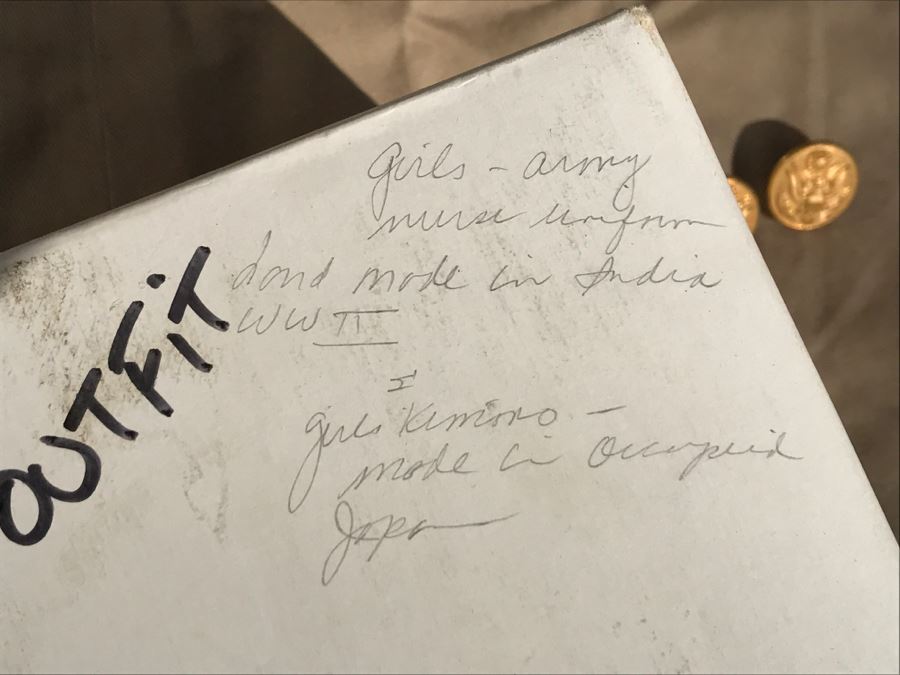 Girls - army
nurse uniform
hand made in India
WW II
&
girls Kimono -
made in Occupied
Japan
OUTFIT